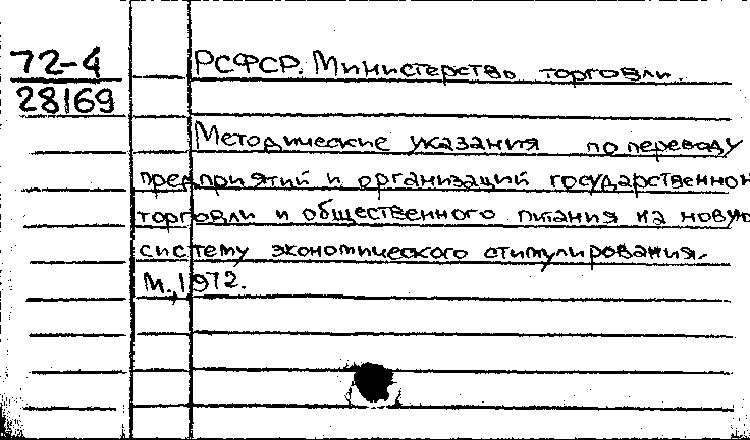 72-4
28169
РСФСР. Министерство торговли.
Методические указания по переводу
предприятий и организаций государственной
торговли и общественного питания на новую
систему экономического стимулирования.
М., 1972.